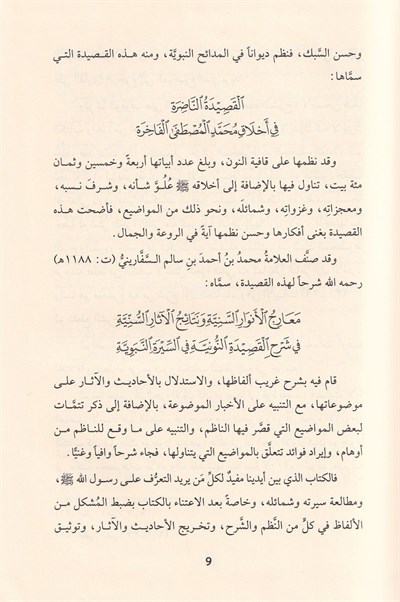 وحسن السَّبك، فنظم ديواناً في المدائح النبويَّة، ومنه هذه القصيدة التي
سمَّاها:
القَصِيدَةُ النَّاضِرَة
فِي أَخْلَاقِ مُحَمَّدٍ المُصْطَفَى الفَاخِرَة
وقد نظمها على قافية النون، وبلغ عدد أبياتها أربعةً وخمسين وثمان
مئة بيت، تناول فيها بالإضافة إلى أخلاقه ﷺ عُلُوَّ شأنه، وشرفَ نسبه،
ومعجزاتِه، وغزواتِه، وشمائلَه، ونحو ذلك من المواضيع، فأضحت هذه
القصيدة بغنى أفكارها وحسن نظمها آيةً في الروعة والجمال.
وقد صنَّف العلامةُ محمدُ بنُ أحمدَ بنِ سالم السفَّارينيُّ (ت: ١١٨٨هـ)
رحمه الله شرحاً لهذه القصيدة، سمَّاه:
مَعَارِجُ الأَنْوَارِ السَّنِيَّة وَنَتَائِجُ الآثَارِ السُّنِّيَّة
فِي شَرْحِ القَصِيدَةِ النُّونِيَّة فِي السِّيرَةِ النَّبَوِيَّة
قام فيه بشرح غريب ألفاظها، والاستدلال بالأحاديث والآثار على
موضوعاتها، مع التنبيه على الأخبار الموضوعة، بالإضافة إلى ذكر تتمَّات
لبعض المواضيع التي قصَّر فيها الناظم، والتنبيه على ما وقع للناظم من
أوهام، وإيراد فوائد تتعلَّق بالمواضيع التي يتناولها، فجاء شرحاً وافياً وغنيًّا.
فالكتاب الذي بين أيدينا مفيدٌ لكلِّ مَن يريد التعرُّف على رسول الله ﷺ،
ومطالعة سيرته وشمائله، وخاصةً بعد الاعتناء بالكتاب بضبط المُشكل من
الألفاظ في كلٍّ من النَّظم والشَّرح، وتخريج الأحاديث والآثار، وتوثيق
9